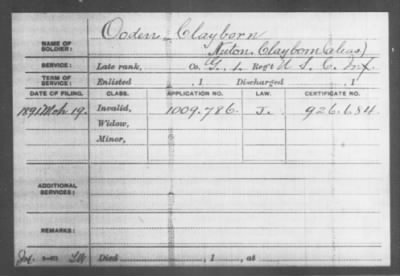 NAME OF SOLDIER: Ogden, Clayborn
Auton, Clayborn (alias)
SERVICE: Late rank, Co. G, 1, Reg't U S C Inf.
TERM OF SERVICE: Enlisted , 1 Discharged , 1
DATE OF FILING. CLASS. APPLICATION NO. LAW. CERTIFICATE NO.
1891 Mch 19. Invalid, 1009.786. J. 926.684
Widow,
Minor,
ADDITIONAL SERVICES:
REMARKS:
Died , 1 , at